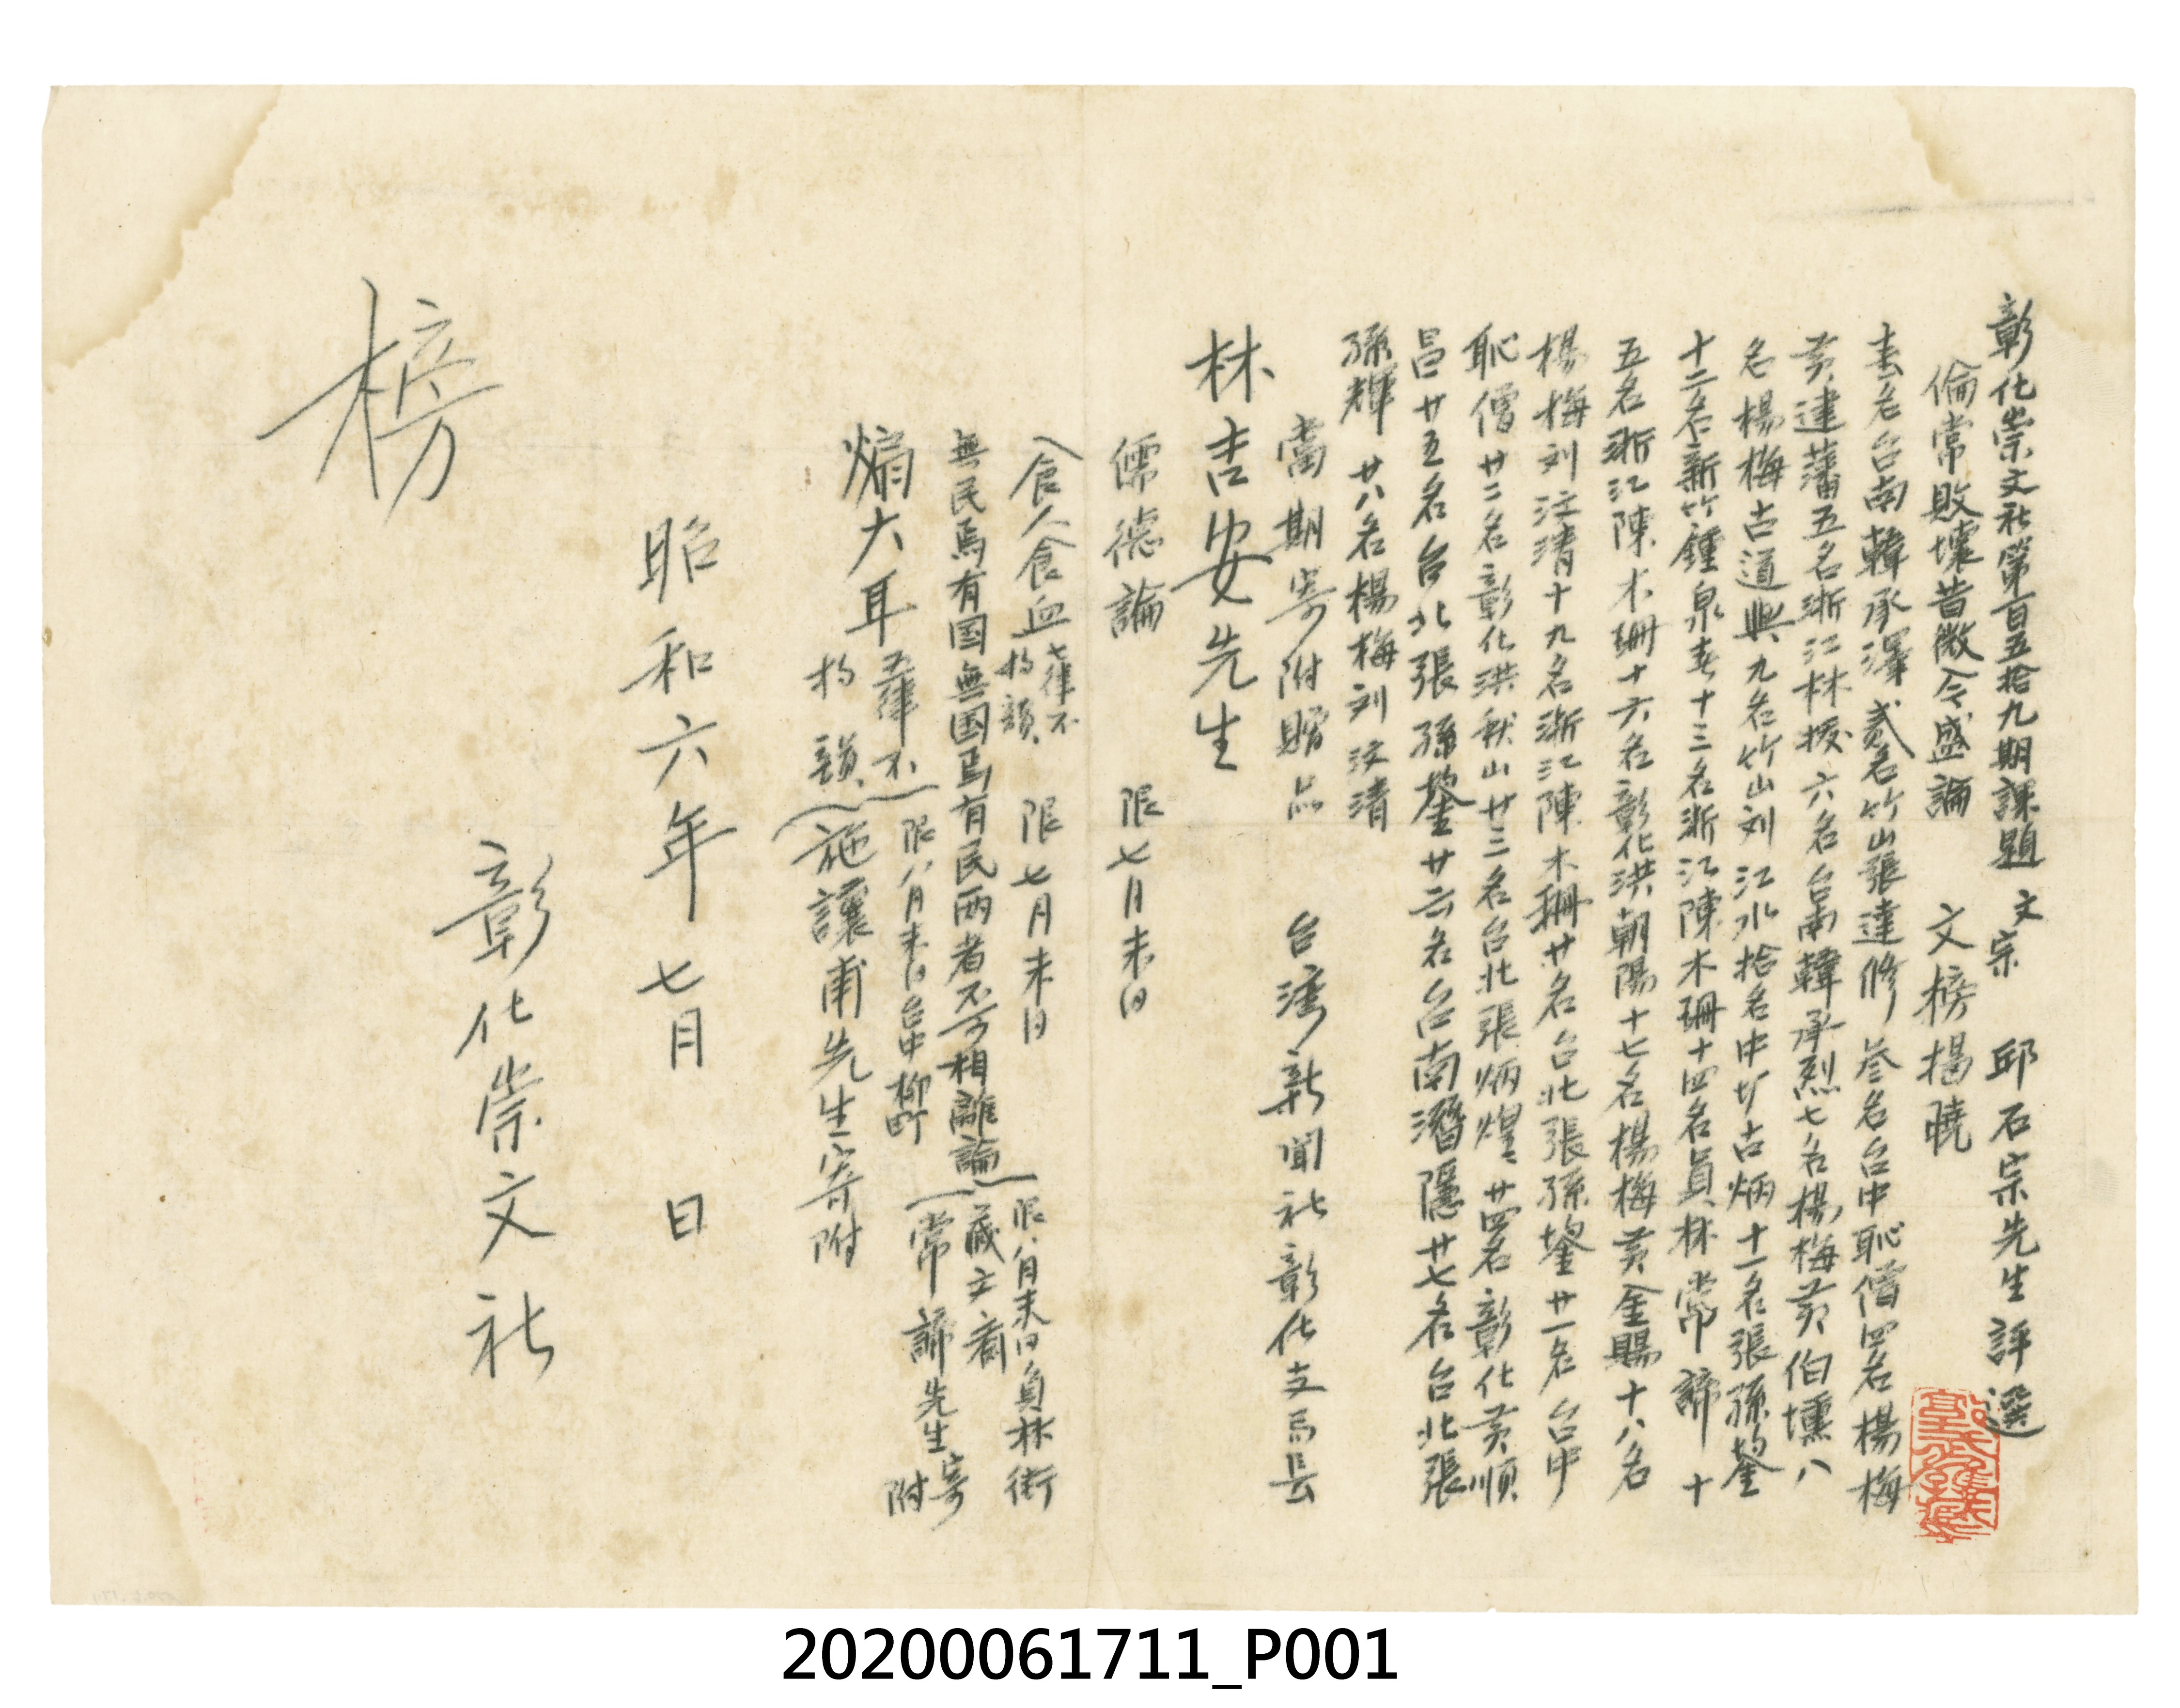 彰化崇文社第百五拾九期課題 文宗 邱石宗先生評選
倫常敗壞昔微今盛論 文榜揭曉
壹名台南韓承澤 貳名竹山張達修 叄名台中耻僧 四名楊梅
黃建藩 五名浙江林援 六名台南韓承烈 七名楊梅黃伯壎 八
名楊梅古道興 九名竹山刘江水 拾名中圹古炳 十一名張孫鋆
十二名新竹鍾泉春 十三名浙江陳木珊 十四名員林常諦 十
五名浙江陳木珊 十六名彰化洪朝陽 十七名楊梅黃金賜 十八名
楊梅刘汶清 十九名浙江陳木珊 廿名台北張孫鋆 廿一名台中
耻僧 廿二名彰化洪秋山 廿三名台北張炳煌 廿四名彰化黃順
昌 廿五名台北張孫鋆 廿六名台南潛隱 廿七名台北張
孫輝 廿八名楊梅刘汶清
當期寄附贈品 台灣新聞社彰化支局長
林吉安先生
儒德論 限七月末日
食人食血 七律不
拘韻 限七月末日
無民焉有国無国焉有民兩者不可相離論 限八月末日員林街
常諦先生寄
附
煽大耳 五律不
拘韻 限八月末日台中柳町
施讓甫先生寄附
昭和六年七月 日
彰化崇文社
榜
20200061711_P001